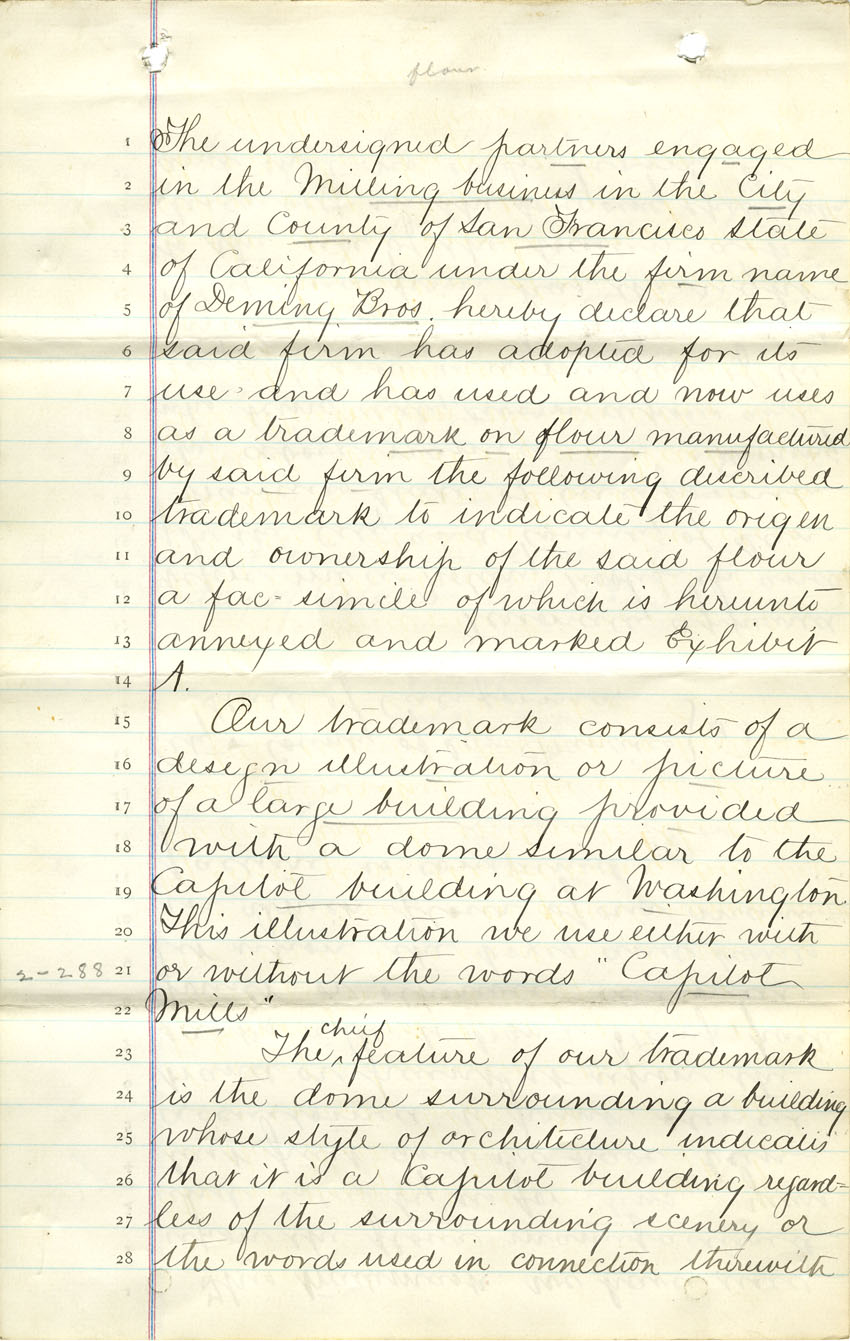 flour
1 The undersigned partners engaged
2 in the Milling business in the City
3 and County of San Francisco state
4 of California under the firm name
5 of Deming Bros. hereby declare that
6 said firm has adopted for its
7 use and has used and now uses
8 as a trademark on flour manufactured
9 by said firm the following discribed
10 trademark to indicate the origen
11 and ownership of the said flour
12 a fac-simile of which is hereunto
13 annexed and marked Exhibit
14 A.
15 Our trademark consists of a
16 design illustration or picture
17 of a large building provided
18 with a dome similar to the
19 Capitol building at Washington
20 This illustration we use either with
2-288 21 or without the words "Capitol
22 Mills"
chief
23 The feature of our trademark
24 is the dome surrounding a building
25 whose style of architecture indicates
26 that it is a Capitol building regard-
27 less of the surrounding scenery or
28 the words used in connection therewith